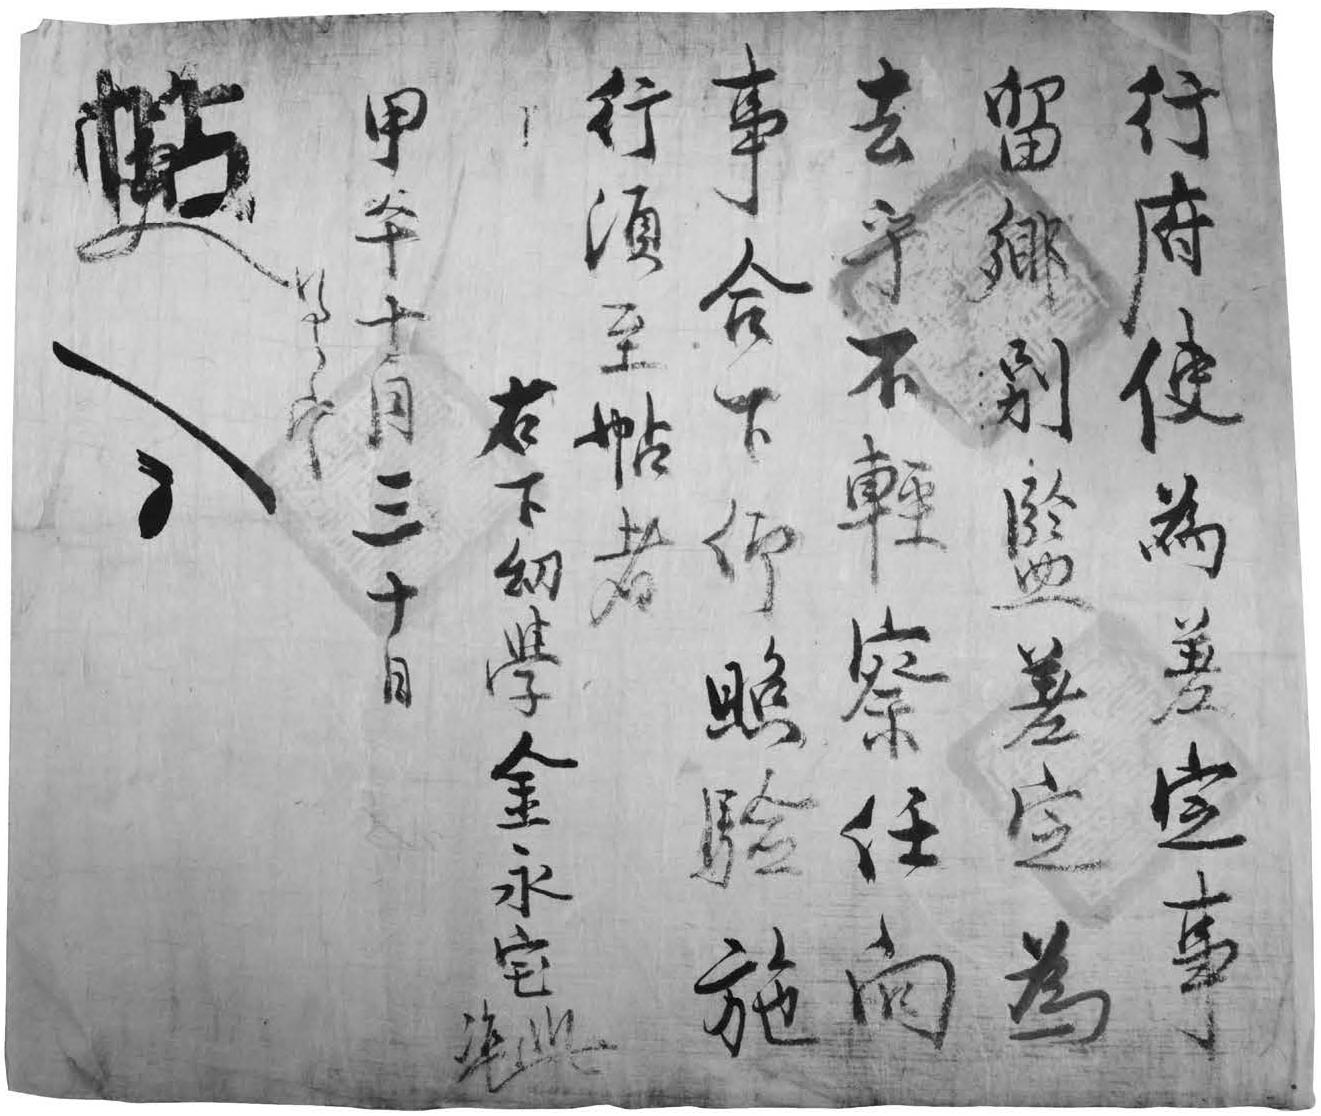 行府使爲差定事
留鄕別監差定爲
去乎不輕察任向
事合下仰照驗施
行須至帖者
右下幼學金永宅準此
甲午十月三十日
帖